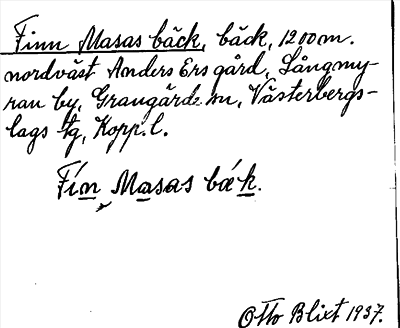 Finn Masas bäck, bäck, 1200 m.
nordväst Anders Ers gård, Långmy-
ran by, Grangärde sn, Västerbergs-
lags tg, Kopp. l.
Fín Masas bák.
Otto Blixt 1937.